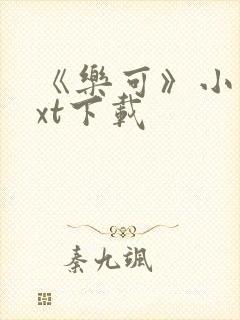 《樂可》小
xt下載
秦九颯